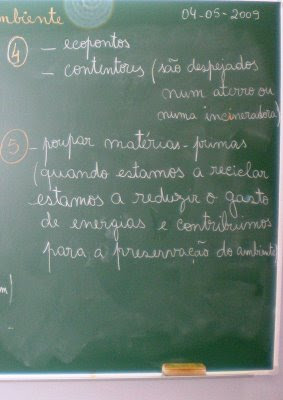 mbiente 04-05-2009
4 - ecopontos
- contentores (são despejados
num aterro ou
numa incineradora)
5 - poupar matérias-primas
(quando estamos a reciclar
estamos a reduzir o gasto
de energias e contribuimos
para a preservação do ambiente)
m)